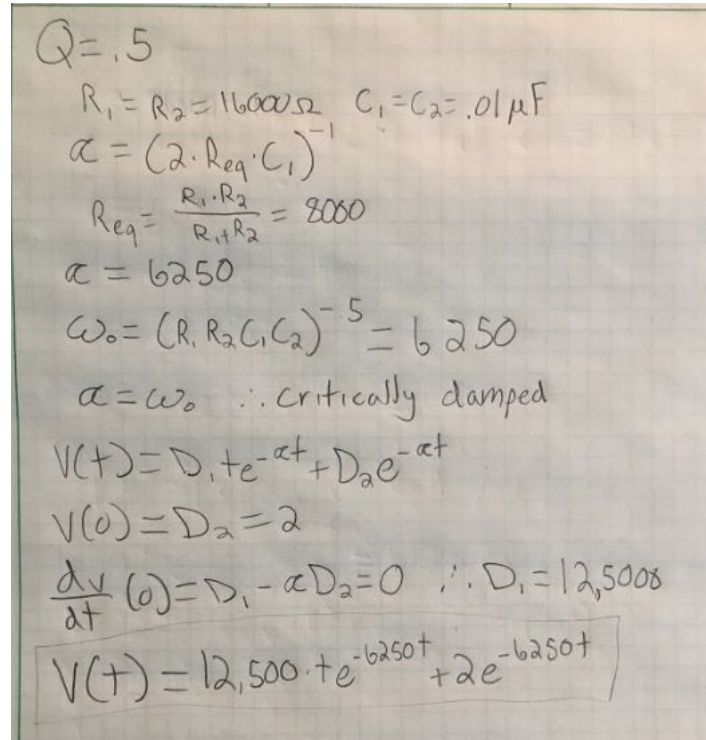 Q=.5
R₁=R₂=16000Ω C₁=C₂=.01μF
α=(2·Req·C₁)⁻¹
Req=R₁·R₂/R₁+R₂=8000
α=6250
ω₀=(R₁R₂C₁C₂)^-.5=6250
α=ω₀ ∴ critically damped
V(t)=D₁te^-αt+D₂e^-αt
V(0)=D₂=2
dv/dt(0)=D₁-αD₂=0 ∴ D₁=12,500
V(t)=12,500·te^-6250t+2e^-6250t